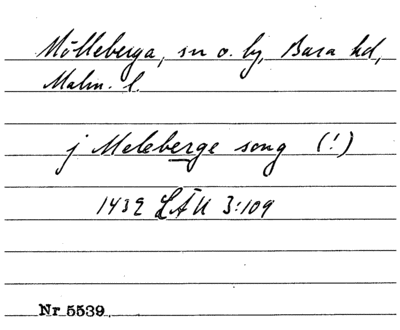 Mölleberga, sn o. by, Bara hd,
Malm. l.
j Meleberge song (!)
1439 LÄU 3:109
Nr 5539